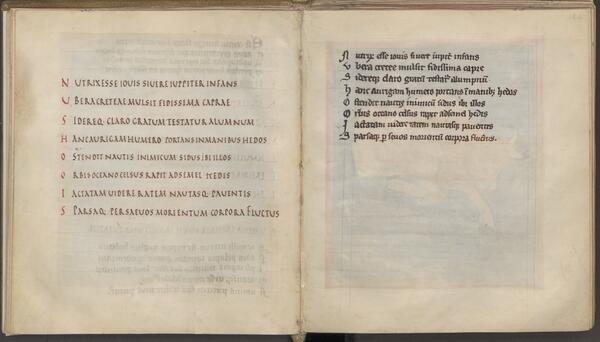 NUTRIX ESSE IOUIS SIUERE IUPPITER INFANS
UBERA CRETEAE MULSIT FIDISSIMA CAPRAE
SIDEREQ. CLARO GRATUM TESTATUR ALUMNUM
HANC AURIGAM HUMERO PORTANS IN MANIBUS HEDOS
OSTENDIT NAUTIS INIMICUM SIDUS IBI ILLOS
ORBIS OCIANO CELSUS RAPIT ADSEMEL
IACTATAM UIDERE RATEM NAUTASQ. PAUENTIS
SPARSAQ. PER SAEUOS MORIENTUM CORPORA FLUCTUS
Nutrix esse iouis siuere iupit infans
Ubera cretee mulsit fidissima capre
Sidereq claro gratu testat alumpnu
Hanc aurigam humero portans i manib hedos
Ostendit nautis inimicu sidus ibi illos
Orbis oceano celsus hedis
Iactatam uidere ratem nautasq pauentes
Sparsaq p seuos morientu corpora fluctus.